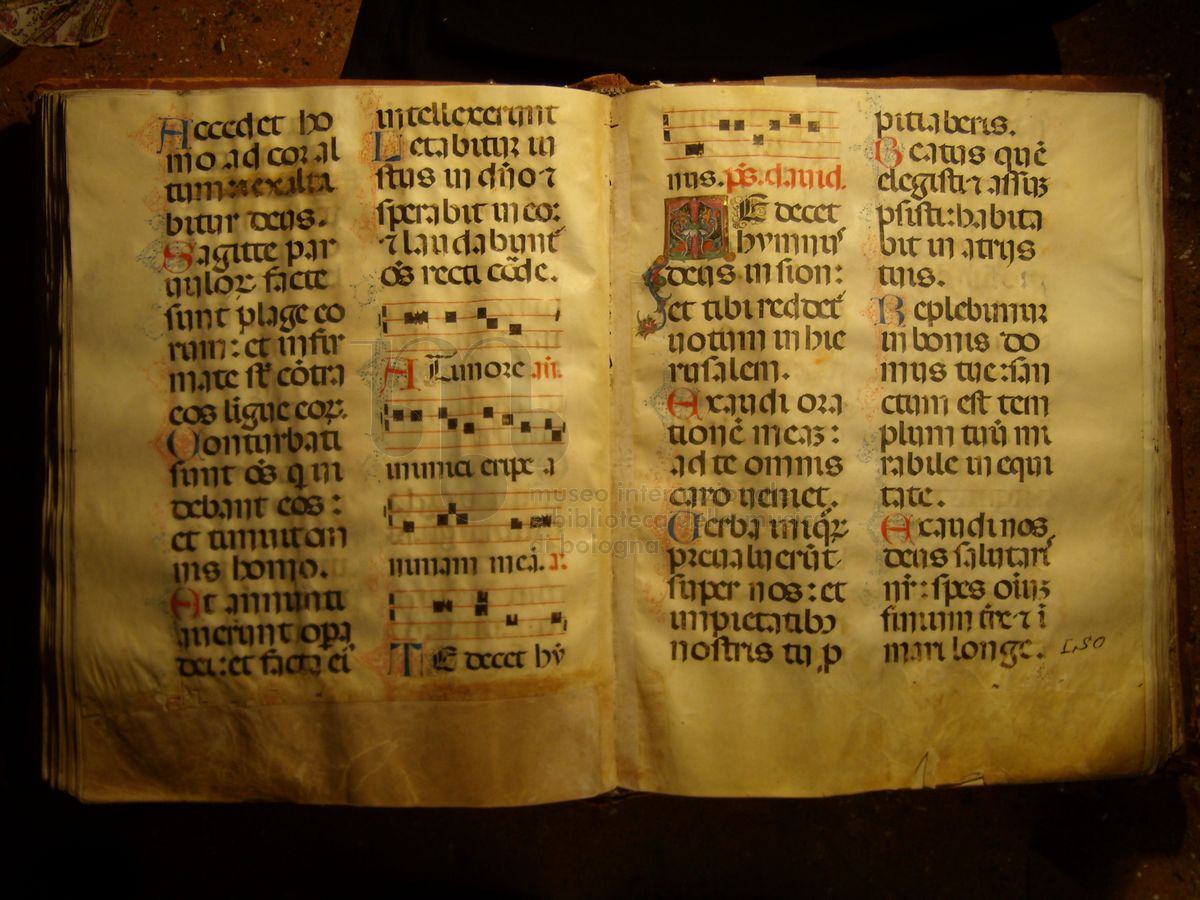 Accedet ho
mo ad cor al
tum: et exalta
bitur deus.
Sagitte par
uuloꝝ facte
sunt plage eo
rum: et infir
mate sūt cōtra
eos ligue eoꝝ.
Conturbati
sunt oēs q ui
debant eos:
et timuit om
nis homo.
Et annunti
auerunt opa
dei: et facta ei'
intellexerunt
Letabitur iu
stus in dn̄o ⁊
sperabit in eo:
⁊ laudabunt'
oēs recti corde.
A Timore an̄.
inimici eripe a
nimam meā. a.
TE decet hy
mnus. ps. dauid.
TE decet
hymnus
deus in sion:
et tibi reddet'
uotum in hie
rusalem.
Exaudi ora
tionē meaꝫ:
ad te omnis
caro ueniet.
Uerba iniqꝝ
preualuerūt
super nos: et
impietatibꝫ
nostris tu ꝓ
pitiaberis.
Beatus quē
elegisti ⁊ assūp
psisti: habita
bit in atrijs
tuis.
Replebimur
in bonis do
mus tue: san
ctum est tem
plum tuū mi
rabile in equi
tate.
Exaudi nos
deus salutaris
nr̄: spes oīuꝫ
finium tr̄e ⁊ ī
mari longe.
museo internazionale
biblioteca della musica
di bologna